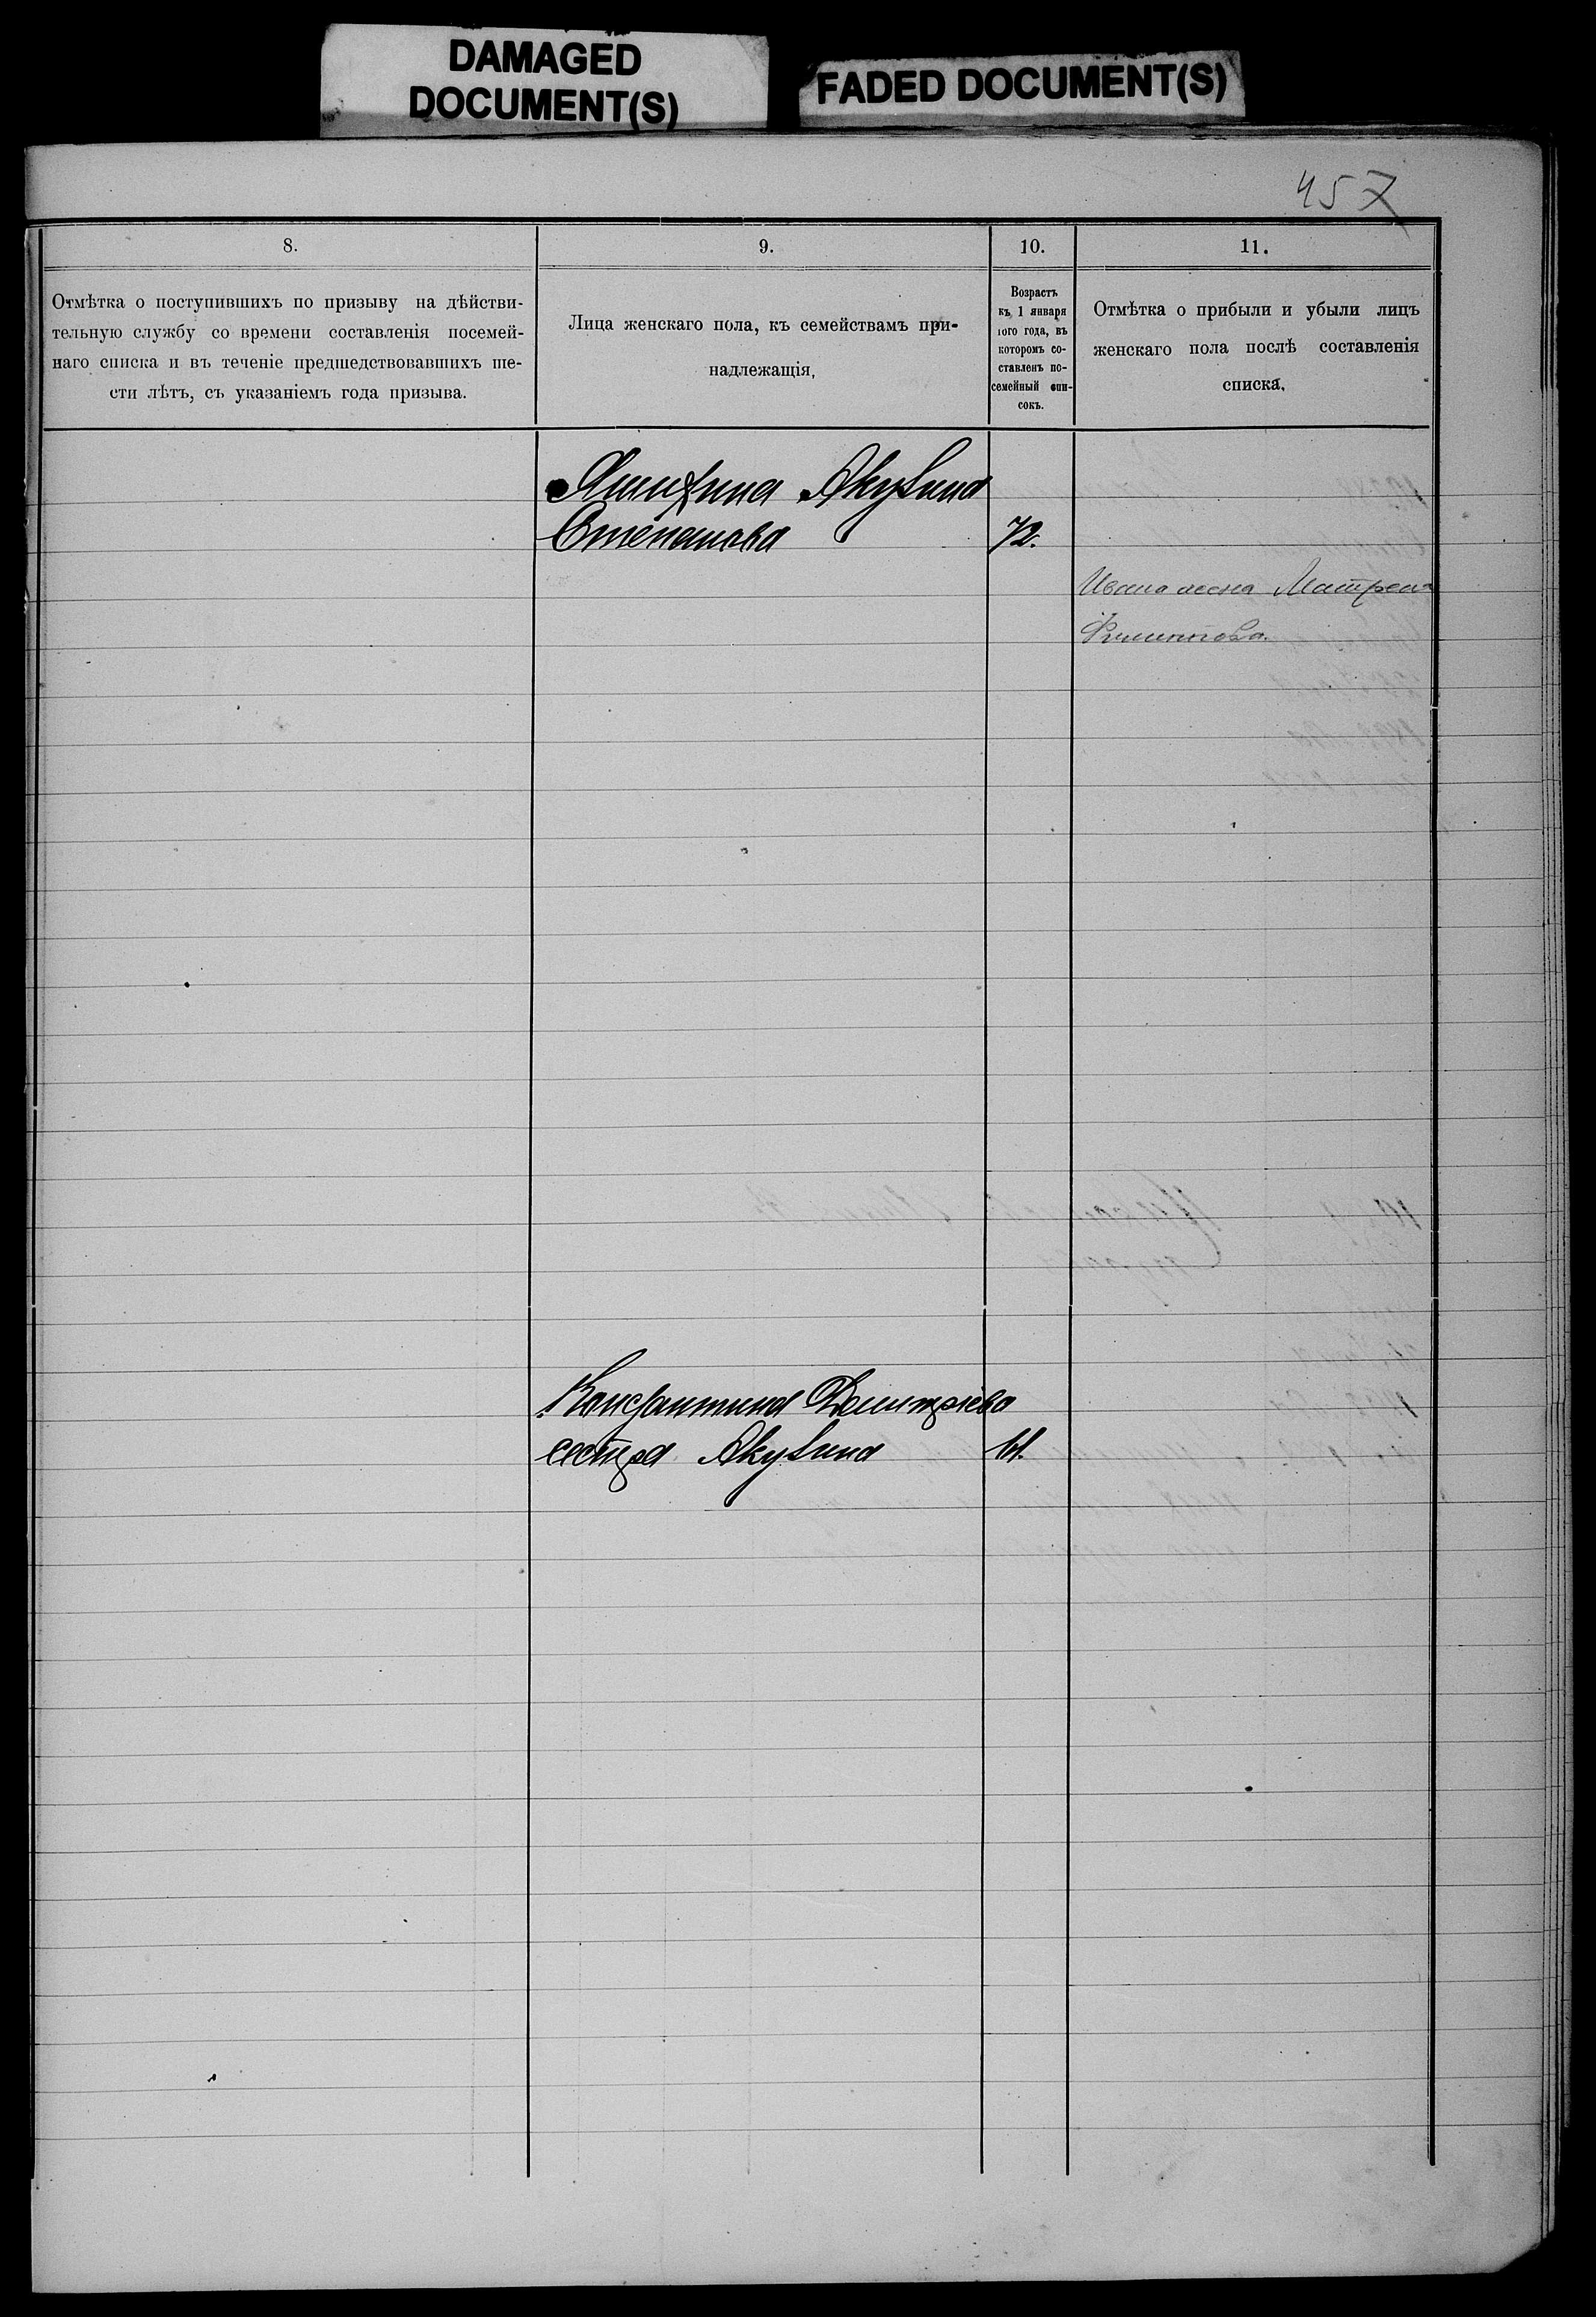 DAMAGED
DOCUMENT(S)
FADED DOCUMENT(S)
457
8.
Отмѣтка о поступившихъ по призыву на дѣйстви-
тельную службу со времени составленія посемей-
наго списка и въ теченіе предшедствовавшихъ ше-
сти лѣтъ, съ указаніемъ года призыва.
9.
Лица женскаго пола, къ семействамъ при-
надлежащія,
10.
Возрастъ
къ 1 января
того года, въ
которомъ со-
ставленъ по-
семейный спи-
сокъ.
11.
Отмѣтка о прибыли и убыли лицъ
женскаго пола послѣ составленія
списка.
Акулина
Степанова 72.
Ивана жена Матрена
Константина Дмитріева
сестра Акулина 61.